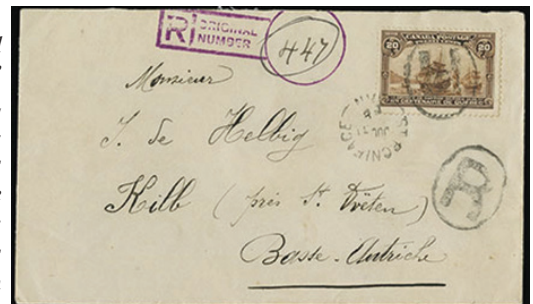 R ORIGINAL
NUMBER
447
CANADA POSTAGE
20 20
Monsieur
J. de Helbig
Kilb (près St. Pölten)
Basse-Autriche
ST BONIFACE
JUL
MAN
R